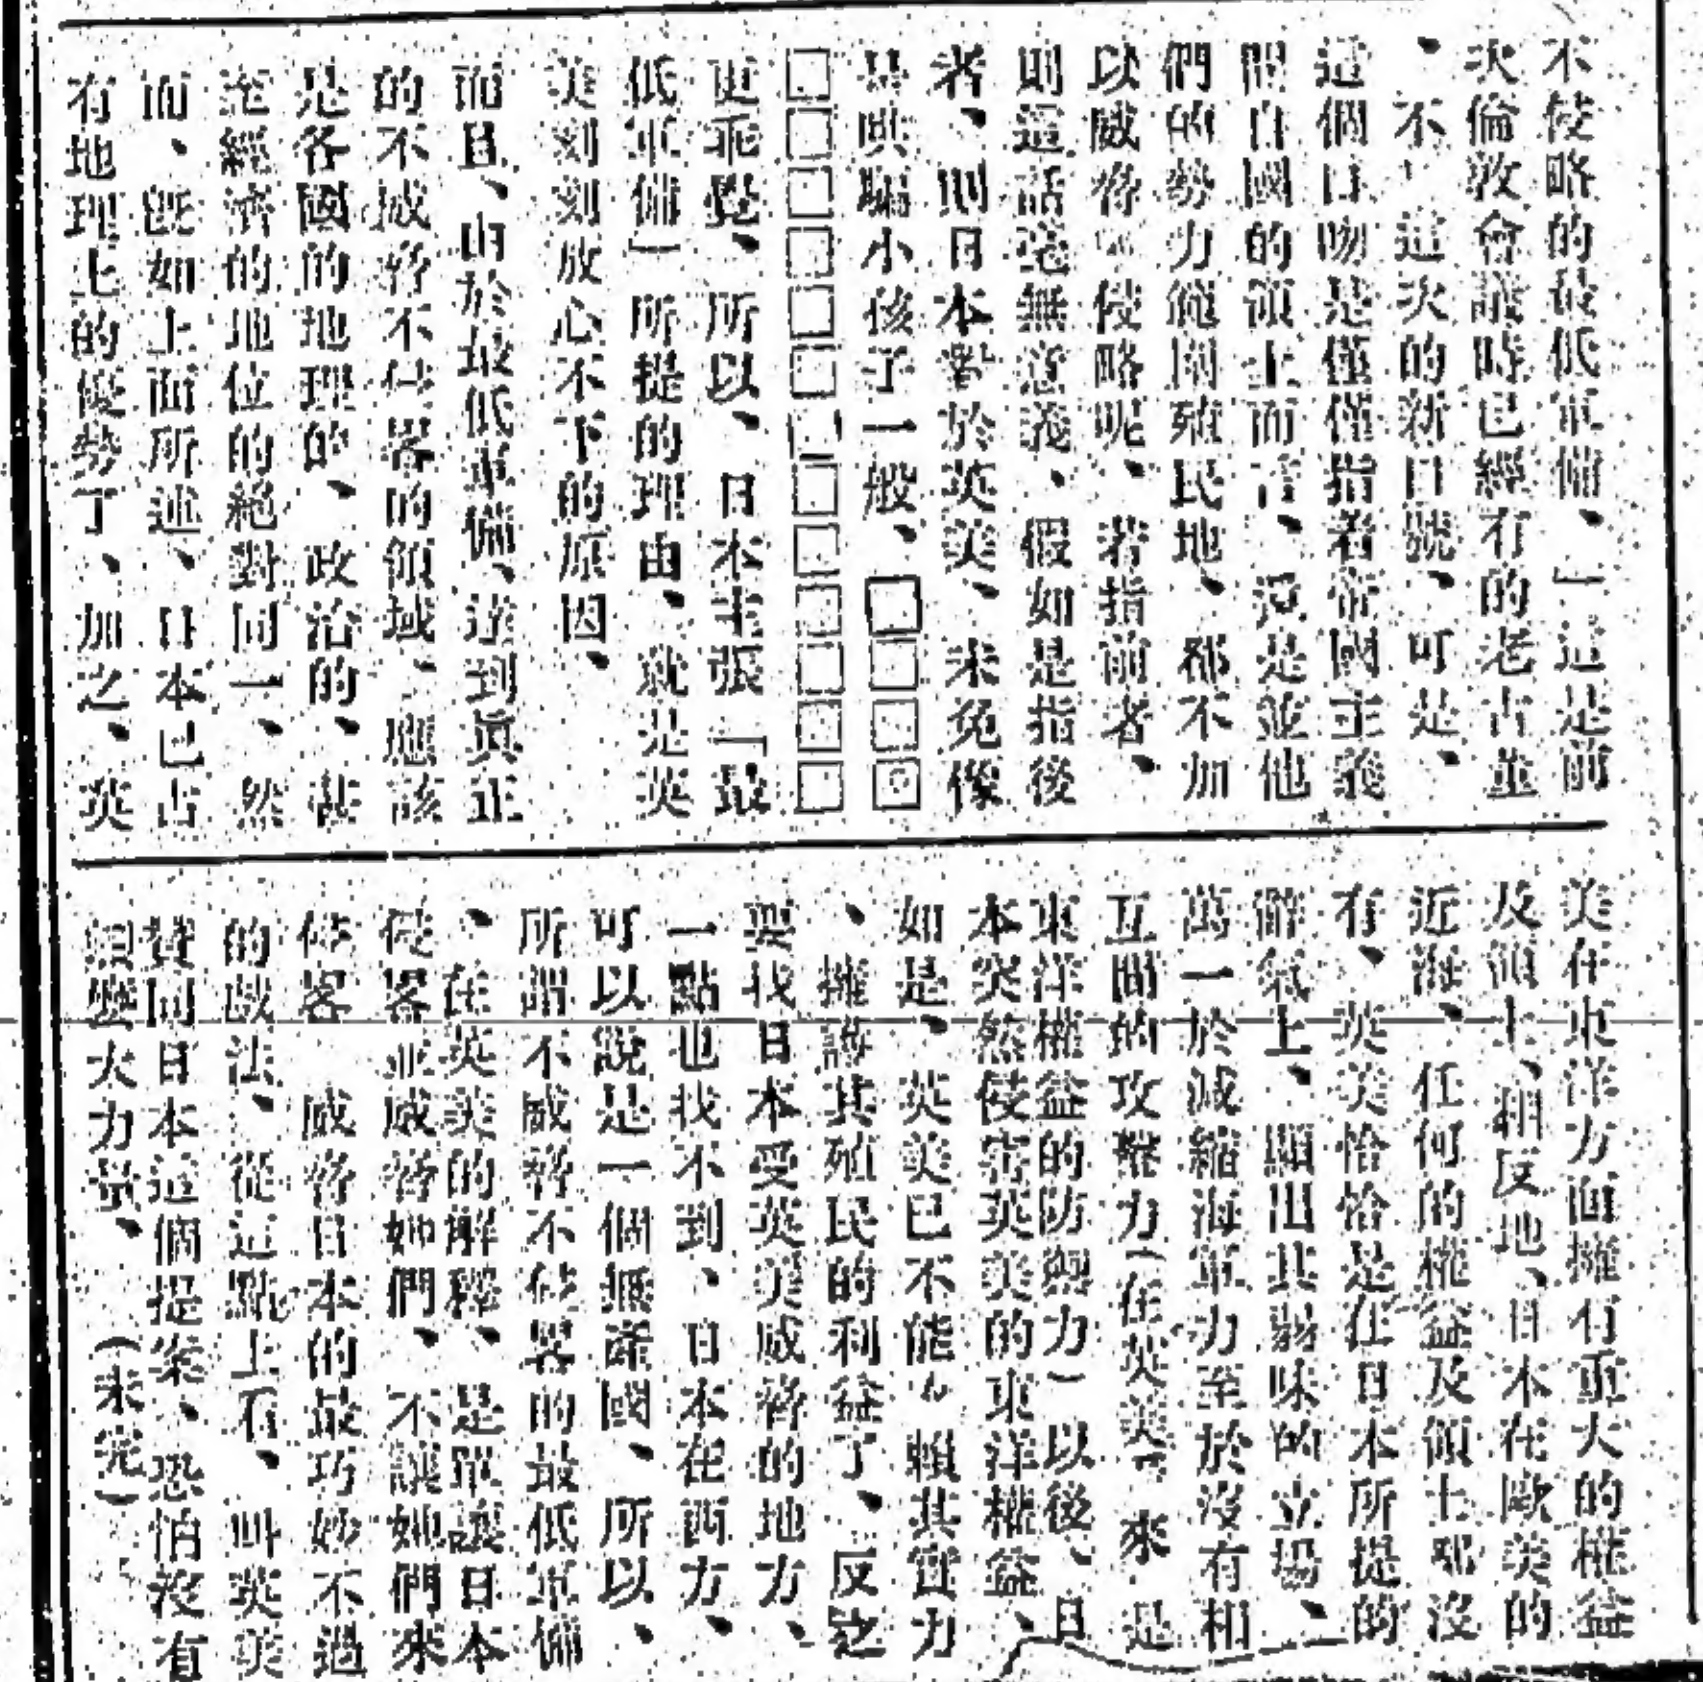 不侵略的最低軍備、」這是前
次倫敦會議時已經有的老古董
、不 這次的新口號、可是、
這個口吻是僅僅指着帝國主義
間自國的領土而言、還是並他
們的勢力範圍殖民地、都不加
以威脅 侵略呢、若指前者、
則這話毫無意義、假如是指後
者、則日本對於英美、未免像
是哄騙小孩子一般、□□□□
□□□□□□□□□□□□□
更乖覺、所以、日本主張「最
低軍備」所提的理由、就是英
美刻刻放心不下的原因、
而且、由於最低軍備、達到眞正
的不威脅不侵畧的領域、應該
是各國的地理的、政治的、甚
至經濟的地位的絕對同一、然
而、旣如上面所述、日本已占
有地理上的優勢了、加之、英
美在東洋方面擁有重大的權益
及領土、相反地、日本在歐美的
近海、任何的權益及領土都沒
有、英美恰恰是在日本所提的
辭氣上、顯出其弱味的立場、
萬一於減縮海軍力至於沒有相
互間的攻擊力(在英美 來 是
東洋權益的防禦力)以後、日
本突然侵害英美的東洋權益、
如是、英美已不能 賴其實力
、擁護其殖民的利益了、反之
要找日本受英美威脅的地方、
一點也找不到、日本在西方、
可以說是一個無產國、所以、
所謂不威脅不侵畧的最低軍備
、在英美的解釋、是單讓日本
侵畧並威脅她們、不讓她們來
侵畧 威脅日本的最巧妙不過
的戯法、從這點上看、叫英美
賛同日本這個提案、恐怕沒有
 大力量、(未完)